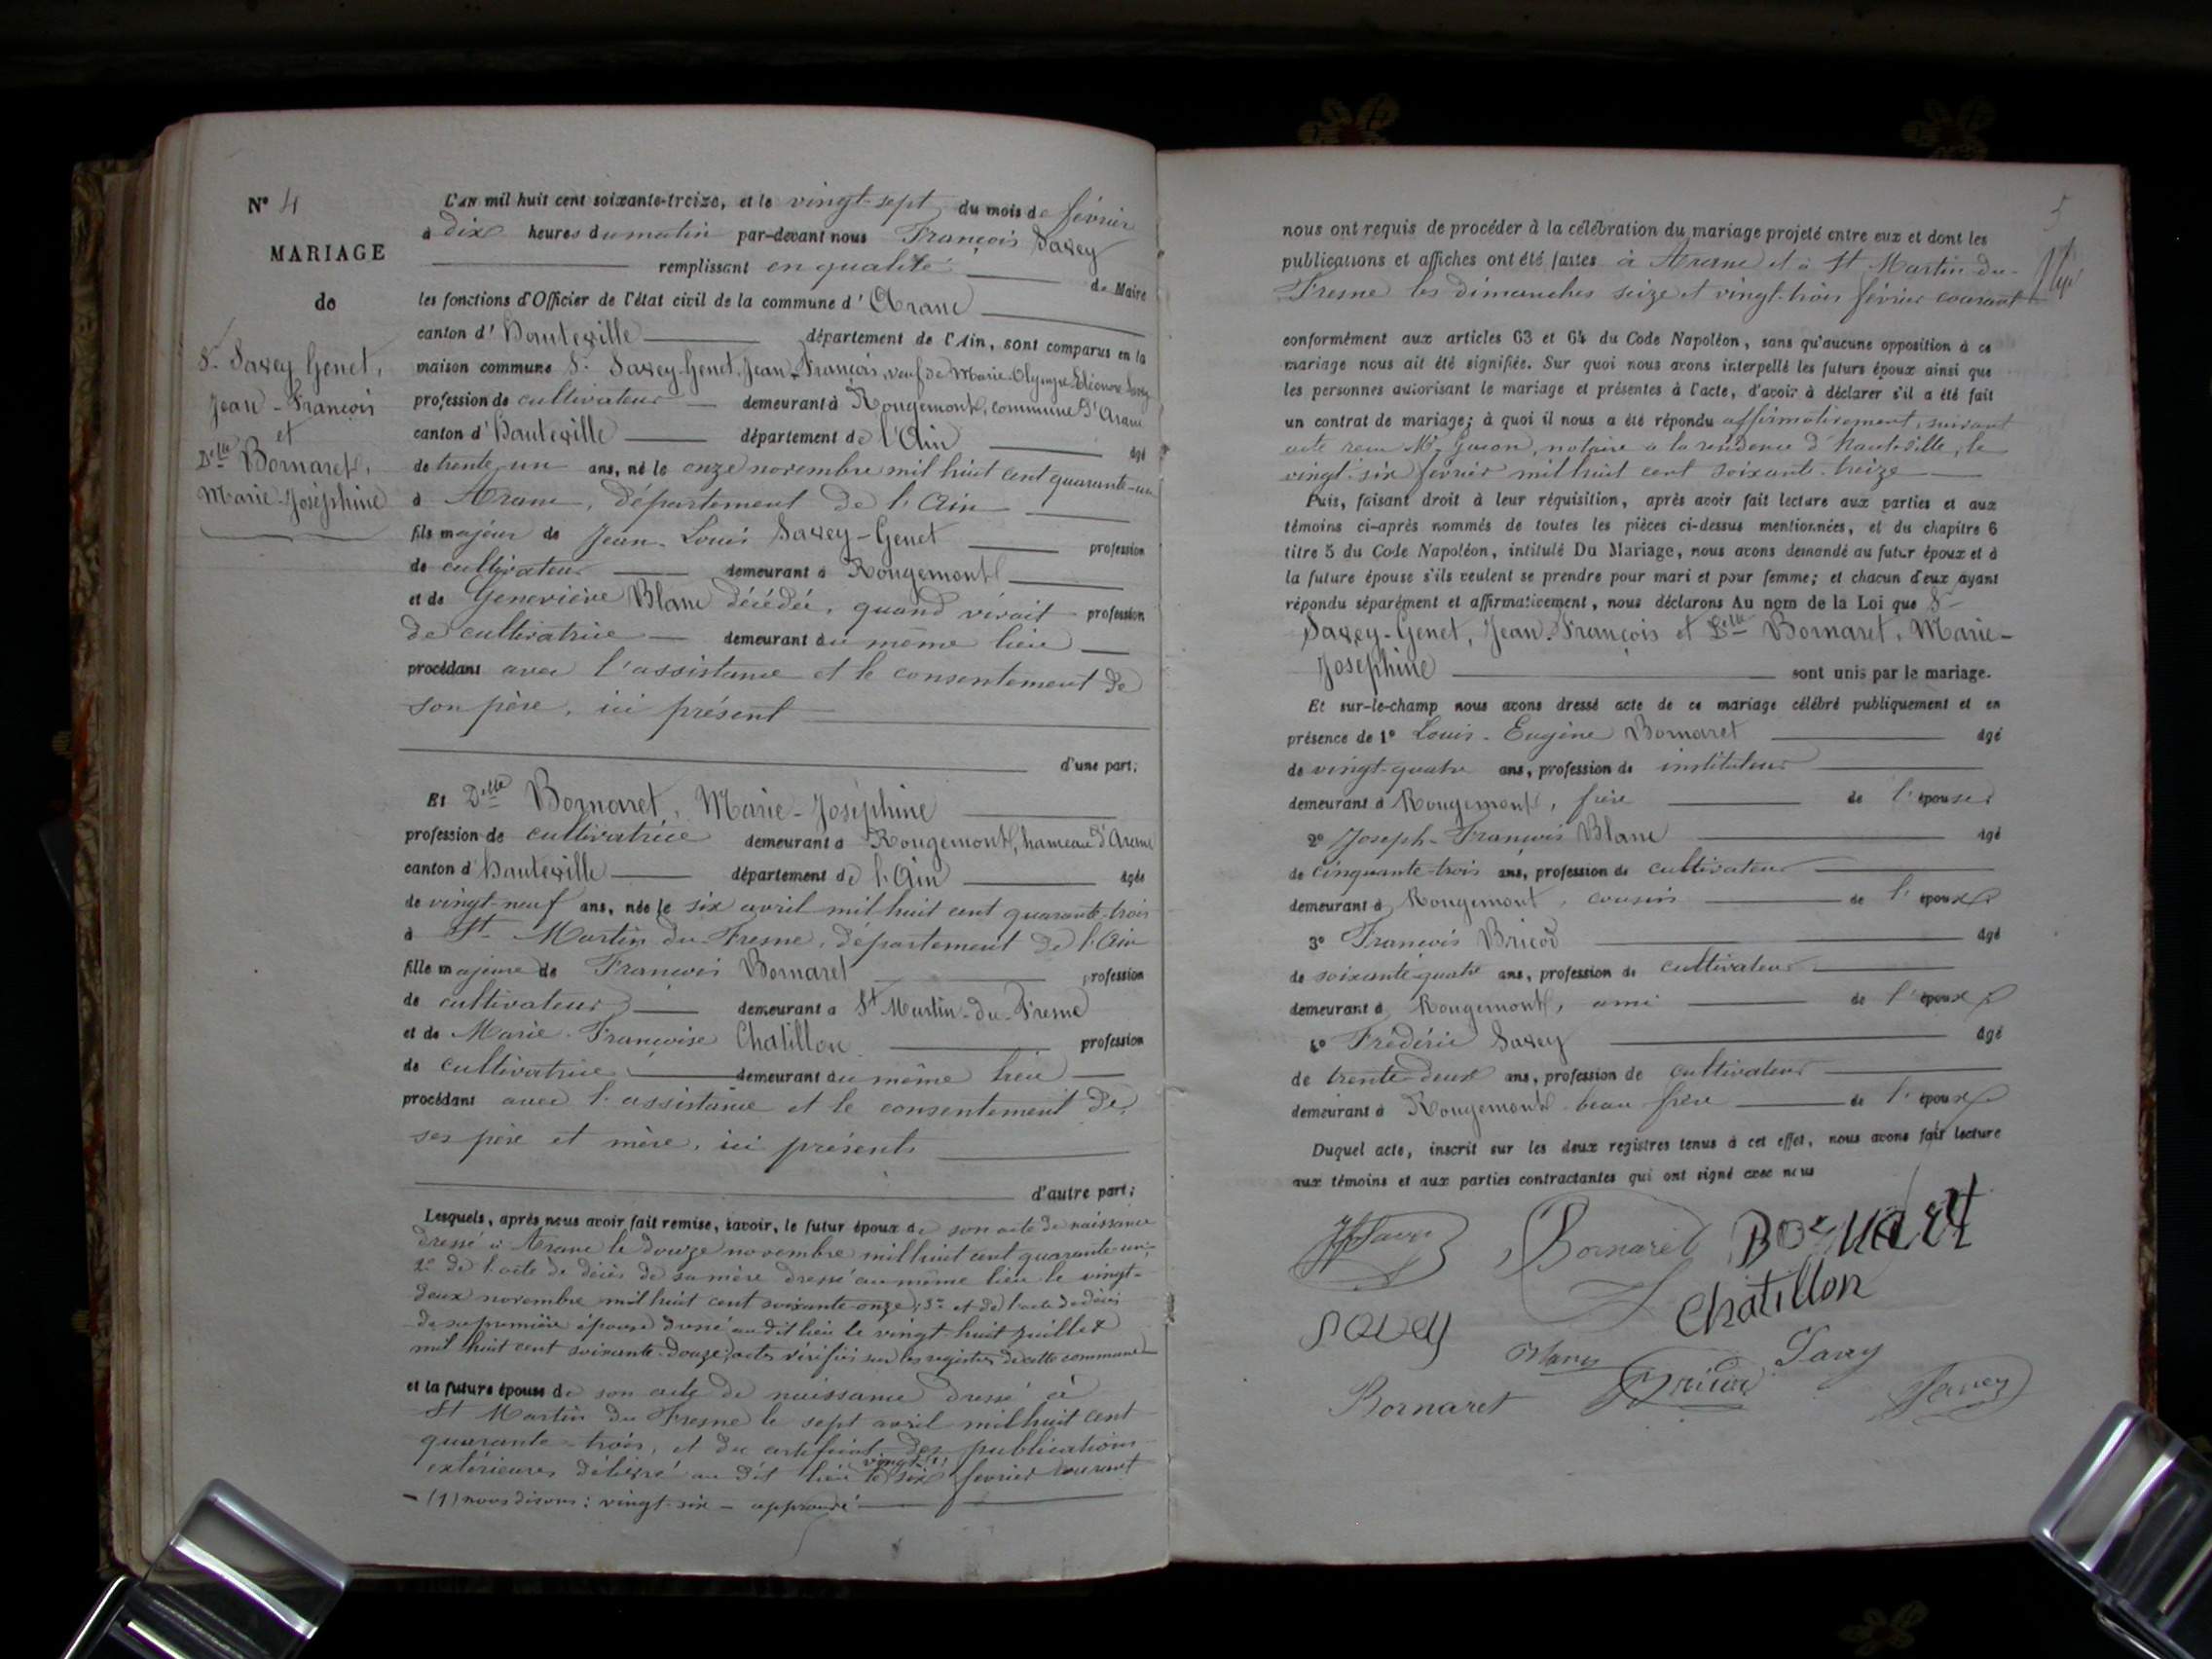 N° 4
MARIAGE
de
Sr Savey Genet,
Jean-François
et
Delle Bornaret,
Marie-Joséphine
L'an mil huit cent soixante-treize, et le vingt-sept du mois de février
à dix heures du matin par-devant nous François Savey
remplissant en qualité de Maire
les fonctions d'Officier de l'état civil de la commune d'Aranc
canton d'Hauteville département de l'Ain, sont comparus en la
maison commune Sr Savey-Genet, Jean-François, veuf de Marie Olympe Eléonore Savey
profession de cultivateur demeurant à Rougemont, commune d'Aranc
canton d'Hauteville département de l'Ain âgé
de trente-un ans, né le onze novembre mil huit cent quarante-un
à Aranc, département de l'Ain
fils majeur de Jean-Louis Savey-Genet profession
de cultivateur demeurant à Rougemont
et de Geneviève Blanc décédée, quand vivait profession
de cultivatrice demeurant au même lieu
procédant avec l'assistance et le consentement de
son père, ici présent
d'une part;
Et Delle Bornaret, Marie-Joséphine
profession de cultivatrice demeurant à Rougemont, hameau d'Aranc
canton d'Hauteville département de l'Ain âgée
de vingt-neuf ans, née le six avril mil huit cent quarante-trois
à St Martin-du-Fresne, département de l'Ain
fille majeure de François Bornaret profession
de cultivateur demeurant à St Martin-du-Fresne
et de Marie-Françoise Chatillon profession
de cultivatrice demeurant au même lieu
procédant avec l'assistance et le consentement de
ses père et mère, ici présents
d'autre part;
Lesquels, après nous avoir fait remise, savoir, le futur époux de son acte de naissance
dressé à Aranc le douze novembre mil huit cent quarante-un;
2° de l'acte de décès de sa mère dressé au même lieu le vingt-
deux novembre mil huit cent soixante-onze; 3° et de l'acte de décès
de sa première épouse dressé au dit lieu le vingt-huit juillet
mil huit cent soixante-douze; actes vérifiés sur les registres de cette commune
et la future épouse de son acte de naissance dressé à
St Martin du Fresne le sept avril mil huit cent
quarante-trois, et du certificat des publications
extérieures délivré au dit lieu le vingt (1) six février courant
— (1) nous disons: vingt-six — approuvé
5
nous ont requis de procéder à la célébration du mariage projeté entre eux et dont les
publications et affiches ont été faites à Aranc et à St Martin-du-
Fresne les dimanches seize et vingt-trois février courant
conformément aux articles 63 et 64 du Code Napoléon, sans qu'aucune opposition à ce
mariage nous ait été signifiée. Sur quoi nous avons interpellé les futurs époux ainsi que
les personnes autorisant le mariage et présentes à l'acte, d'avoir à déclarer s'il a été fait
un contrat de mariage; à quoi il nous a été répondu affirmativement, suivant
acte reçu Me notaire à la résidence d'Hauteville, le
vingt-six février mil huit cent soixante-treize
Puis, faisant droit à leur réquisition, après avoir fait lecture aux parties et aux
témoins ci-après nommés de toutes les pièces ci-dessus mentionnées, et du chapitre 6
titre 5 du Code Napoléon, intitulé Du Mariage, nous avons demandé au futur époux et à
la future épouse s'ils veulent se prendre pour mari et pour femme; et chacun d'eux ayant
répondu séparément et affirmativement, nous déclarons Au nom de la Loi que Sr
Savey-Genet, Jean-François et Delle Bornaret, Marie-
Joséphine sont unis par le mariage.
Et sur-le-champ nous avons dressé acte de ce mariage célébré publiquement et en
présence de 1° Louis-Eugène Bornaret âgé
de vingt-quatre ans, profession de instituteur
demeurant à Rougemont, frère de l'épouse
2° Joseph-François Blanc âgé
de cinquante-trois ans, profession de cultivateur
demeurant à Rougemont, cousin de l'époux
3° François Bricod âgé
de soixante-quatre ans, profession de cultivateur
demeurant à Rougemont, ami de l'époux
4° Frédéric Savey âgé
de trente-deux ans, profession de cultivateur
demeurant à Rougemont beau frère de l'époux
Duquel acte, inscrit sur les deux registres tenus à cet effet, nous avons fait lecture
aux témoins et aux parties contractantes qui ont signé avec nous
Bornaret Bornaret
Chatillon
Savey
Blanc Savey
Bornaret Bricod Savey